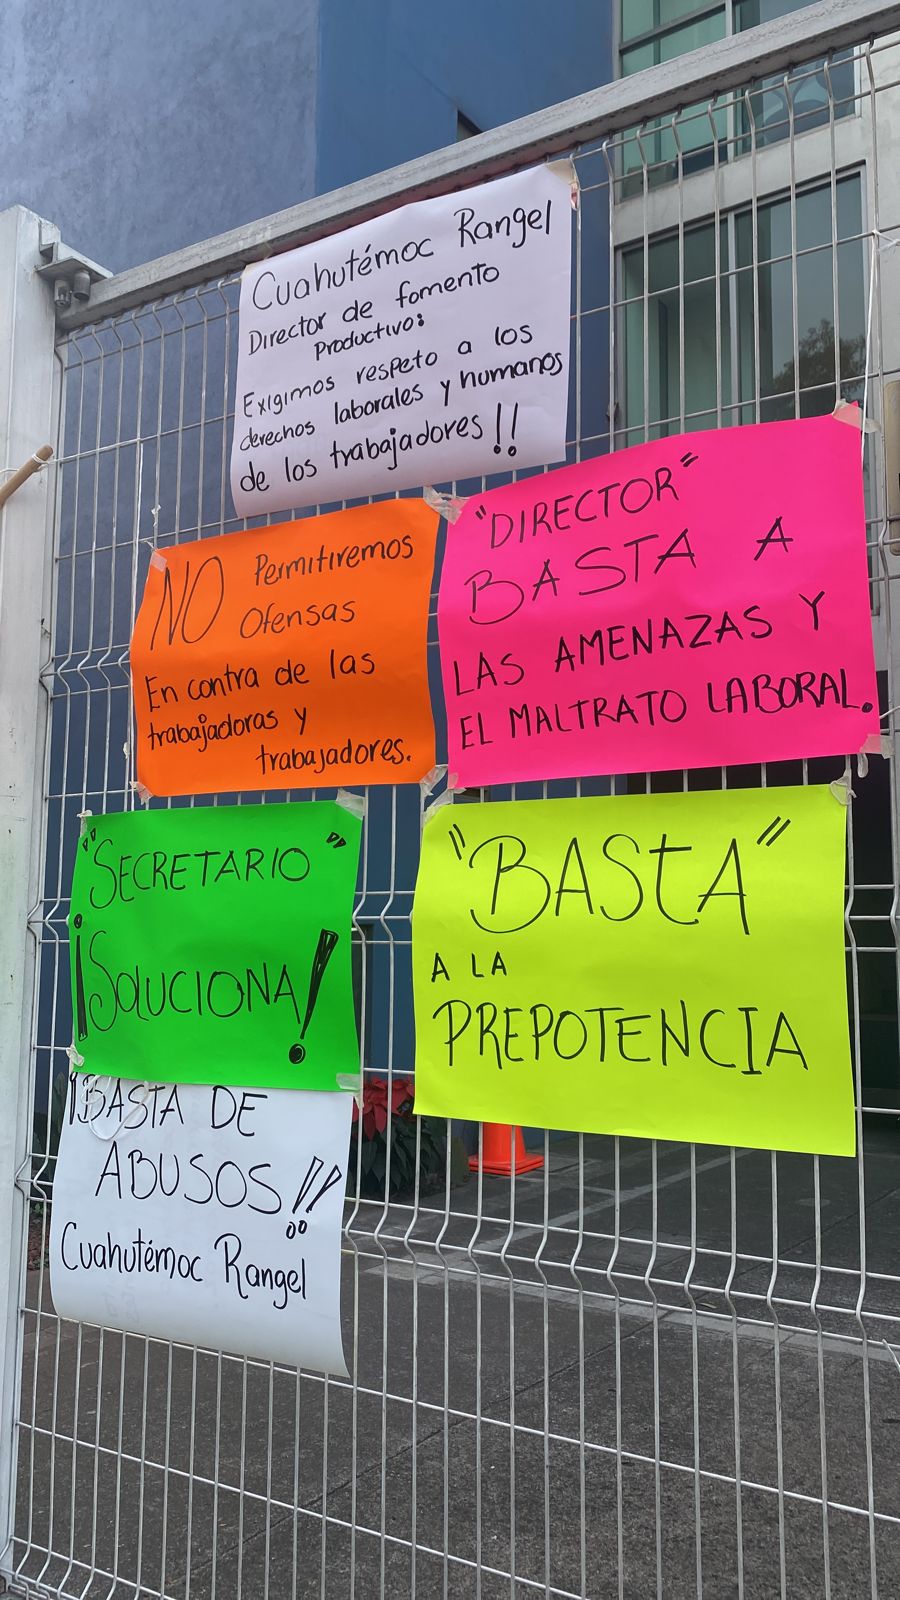 Cuahutémoc Rangel
Director de fomento
Productivo:
Exigimos respeto a los
derechos laborales y humanos
de los trabajadores!!
"DIRECTOR"
BASTA A
LAS AMENAZAS Y
EL MALTRATO LABORAL.
NO Permitiremos
Ofensas
En contra de las
trabajadoras y
trabajadores.
"SECRETARIO"
¡SOLUCIONA!
"BASTA"
A LA
PREPOTENCIA
¡BASTA DE
ABUSOS!!
Cuahutémoc Rangel